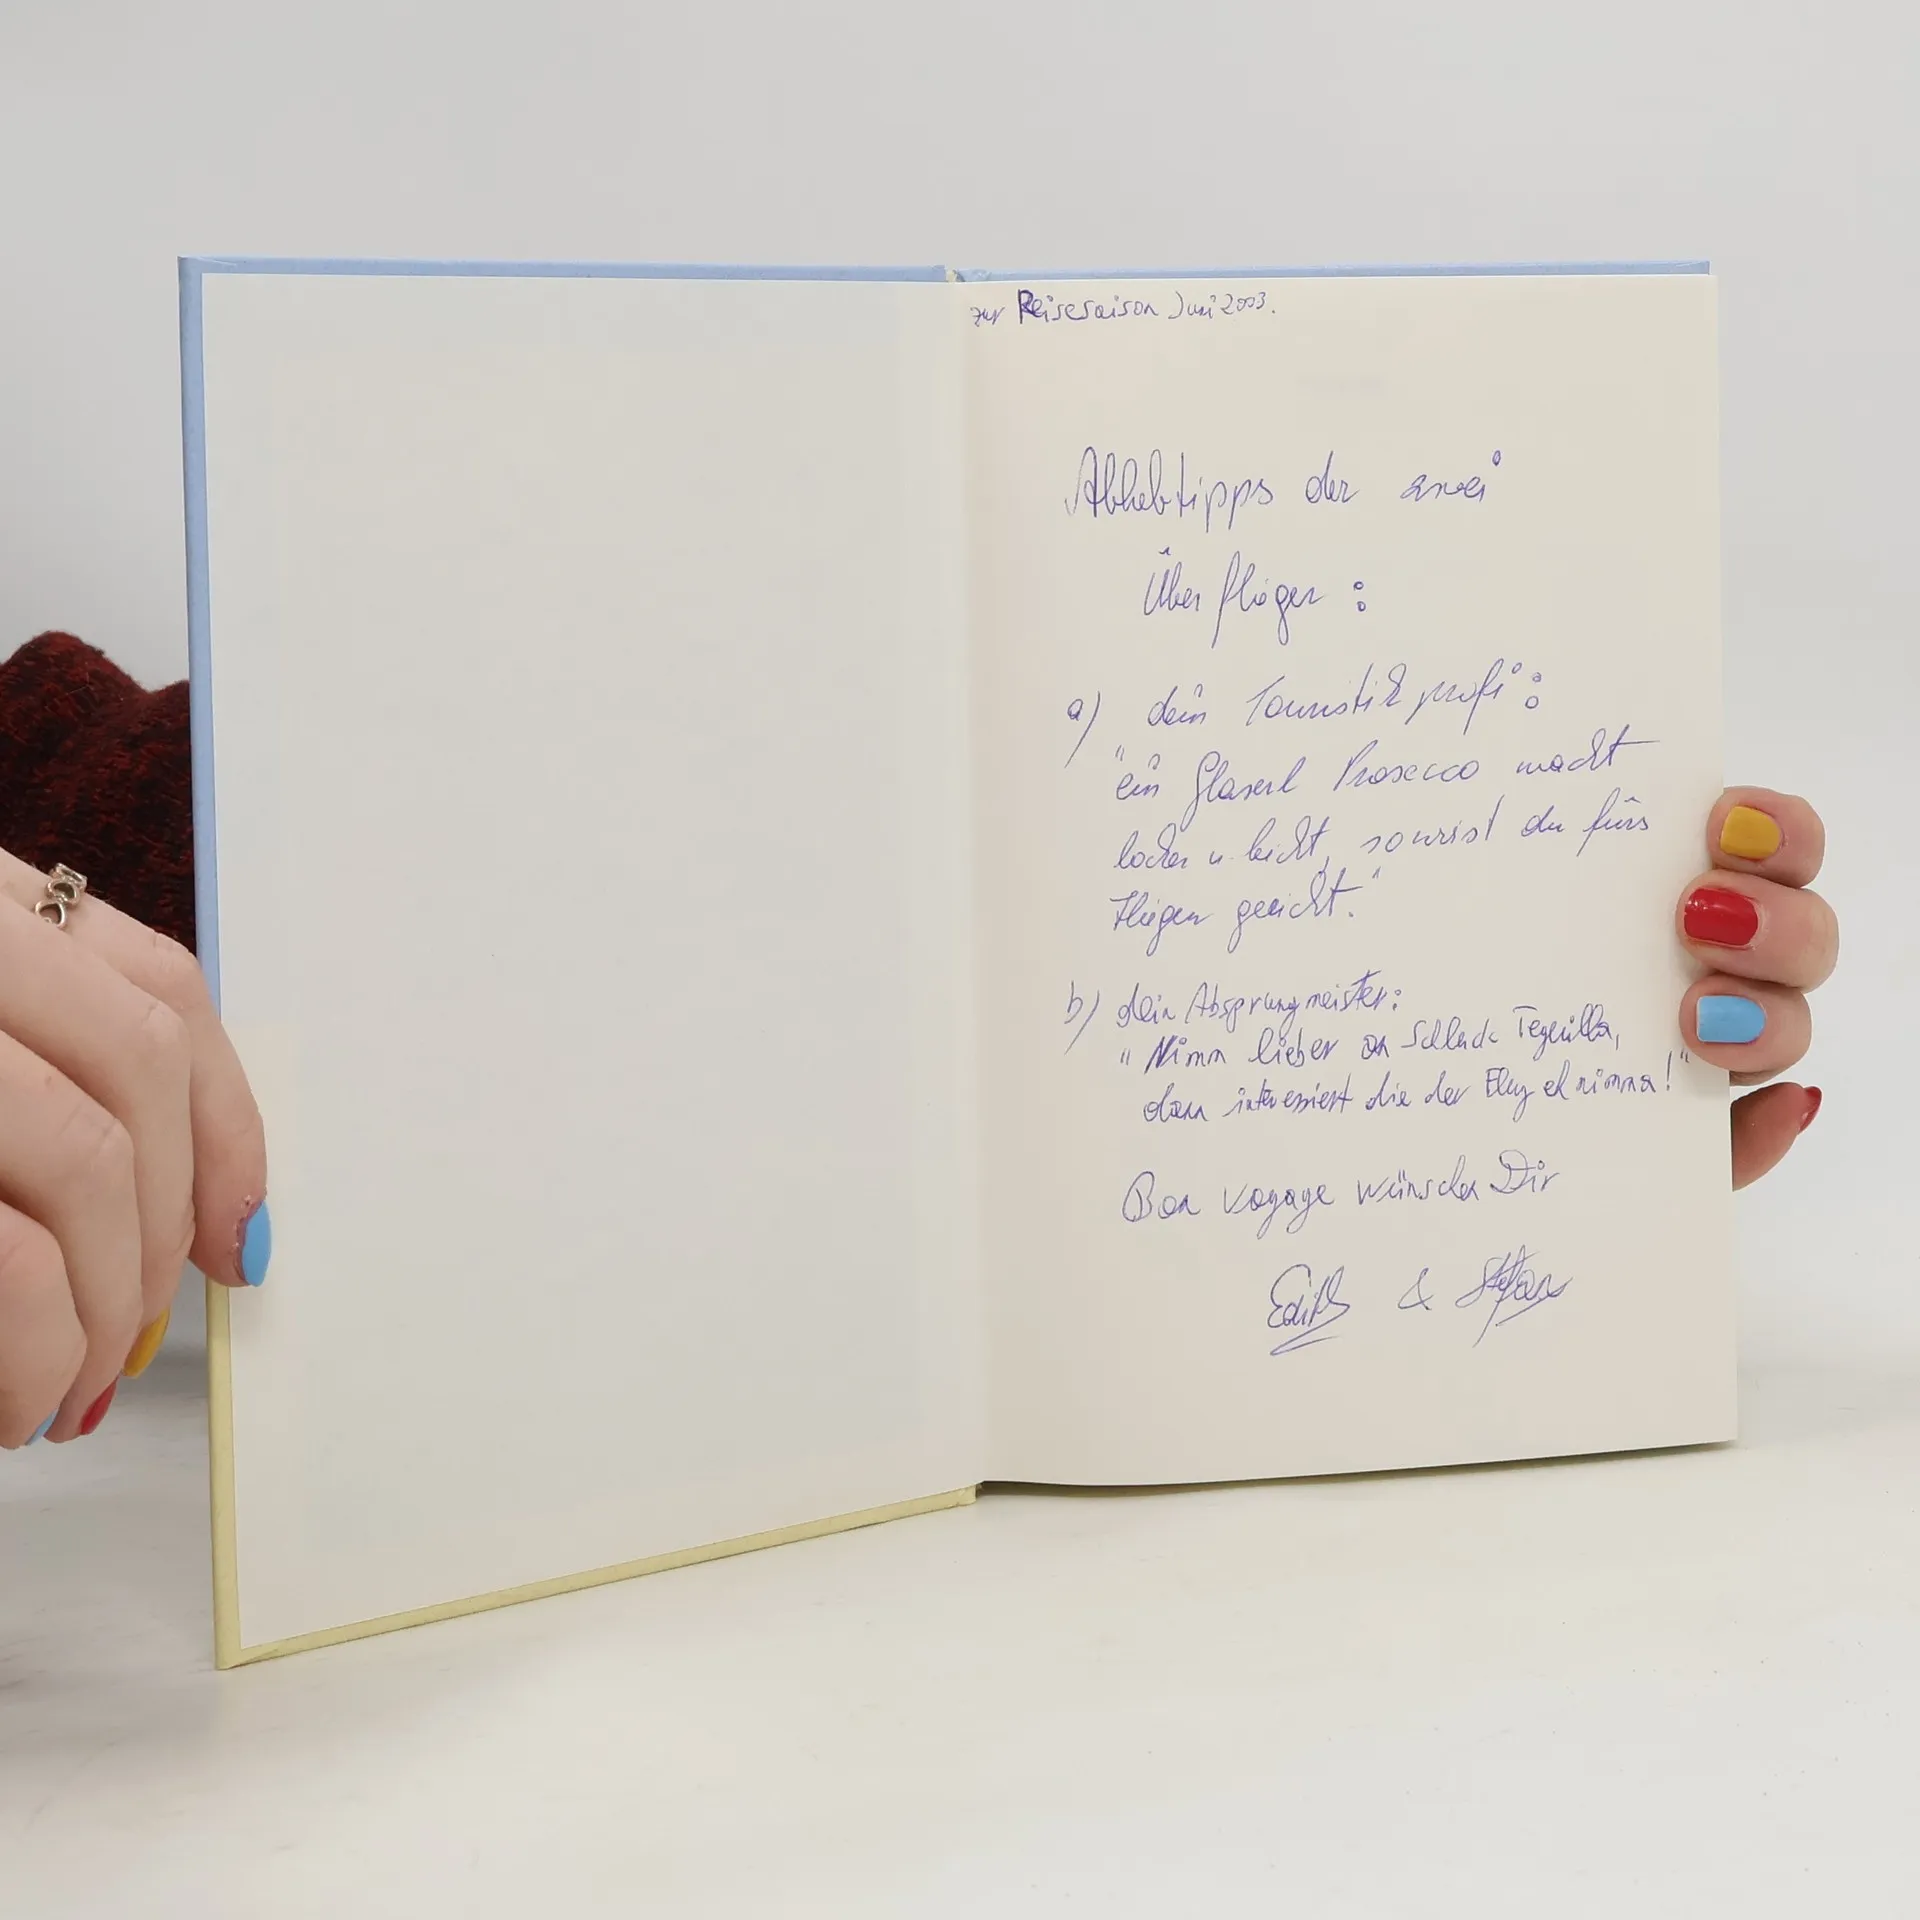 zur Reisesaison Juni 2003.
Abhebtipps der zwei
Überflieger:
a) dein Touristikprofi:
"ein Glaserl Prosecco macht
locker u. leicht, so wirst du fürs
Fliegen geeicht."
b) dein Absprungmeister:
"Nimm lieber an Schluck Tequilla,
dann interessiert die der Flug eh nimma!"
Bon voyage wünschen Dir
Edith & Stefan